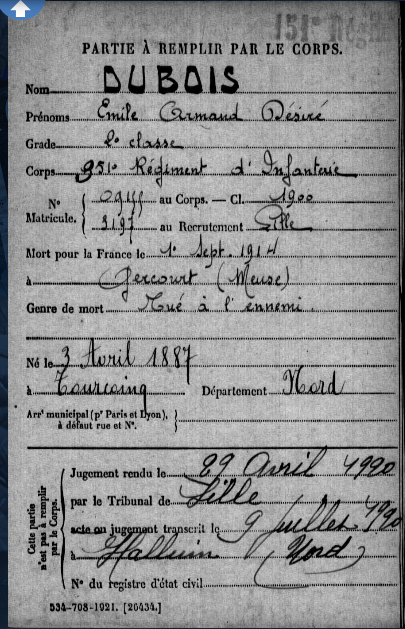 151e Régi
PARTIE À REMPLIR PAR LE CORPS.
Nom DUBOIS
Prénoms Emile Armand Désiré
Grade 2e classe
Corps 351e Régiment d'Infanterie
N° Matricule. { au Corps. — Cl. 1900
3197 au Recrutement Lille
Mort pour la France le 1er Sept. 1914
à Gercourt (Meuse)
Genre de mort Tué à l'ennemi
Né le 3 Avril 1887
à Tourcoing Département Nord
Arrt municipal (pr Paris et Lyon), à défaut rue et N°. }
Cette partie n'est pas à remplir par le Corps.
Jugement rendu le 29 Avril 1920
par le Tribunal de Lille
acte ou jugement transcrit le 9 Juillet 1920
à Halluin (Nord)
N° du registre d'état civil
534-708-1921. [26434.]